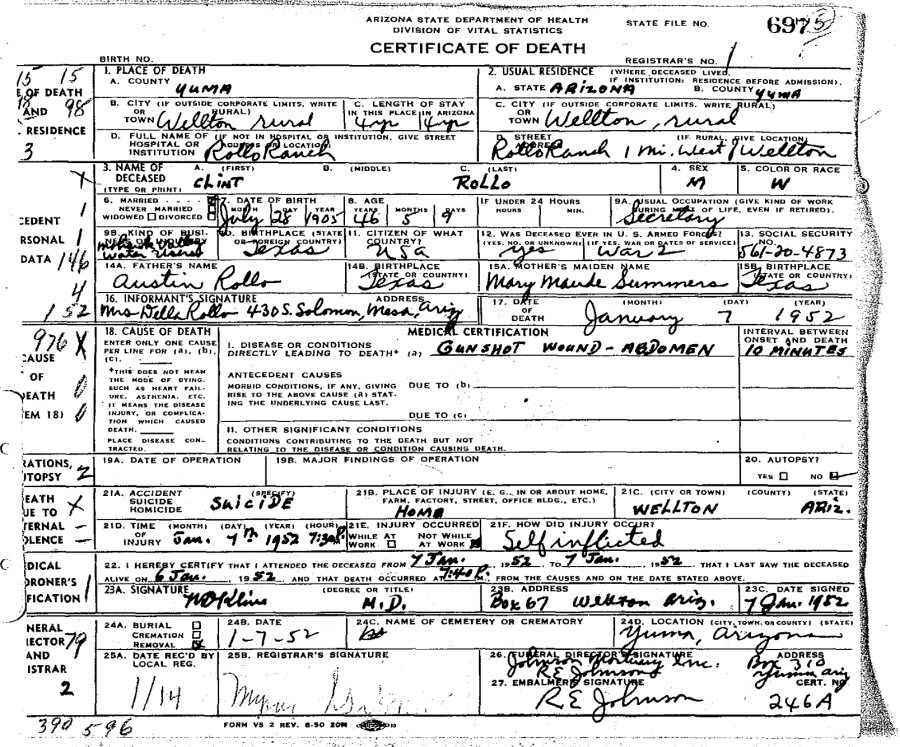 ARIZONA STATE DEPARTMENT OF HEALTH
DIVISION OF VITAL STATISTICS
STATE FILE NO. 697
CERTIFICATE OF DEATH
BIRTH NO.
REGISTRAR'S NO. 1
15 15
E OF DEATH
AND 98
RESIDENCE
3
1. PLACE OF DEATH
A. COUNTY YUMA
2. USUAL RESIDENCE (WHERE DECEASED LIVED. IF INSTITUTION: RESIDENCE BEFORE ADMISSION).
A. STATE ARIZONA B. COUNTY YUMA
B. CITY (IF OUTSIDE CORPORATE LIMITS, WRITE RURAL) OR TOWN Wellton, rural
C. LENGTH OF STAY IN THIS PLACE IN ARIZONA 4yr 4yr
C. CITY (IF OUTSIDE CORPORATE LIMITS, WRITE RURAL) OR TOWN Wellton, rural
D. FULL NAME OF (IF NOT IN HOSPITAL OR INSTITUTION, GIVE STREET ADDRESS OR LOCATION) HOSPITAL OR INSTITUTION Rollo Ranch
D. STREET ADDRESS (IF RURAL, GIVE LOCATION) Rollo Ranch 1 Mi. West / Wellton
3. NAME OF DECEASED (TYPE OR PRINT) A. (FIRST) CLINT B. (MIDDLE) C. (LAST) ROLLO
4. SEX M
5. COLOR OR RACE W
CEDENT 1
RSONAL
DATA 146
4
1 52
6. MARRIED
NEVER MARRIED
WIDOWED DIVORCED
7. DATE OF BIRTH MONTH DAY YEAR July 28 1905
8. AGE YEARS MONTHS DAYS 46 5 9
IF UNDER 24 HOURS HOURS MIN.
9A. USUAL OCCUPATION (GIVE KIND OF WORK DURING MOST OF LIFE, EVEN IF RETIRED). Secretary
9B. KIND OF BUSI- Water Users
10. BIRTHPLACE (STATE OR FOREIGN COUNTRY) Texas
11. CITIZEN OF WHAT COUNTRY? USA
12. WAS DECEASED EVER IN U. S. ARMED FORCES? (YES, NO, OR UNKNOWN) (IF YES, WAR OR DATES OF SERVICE) Yes War 2
13. SOCIAL SECURITY NO. 561-20-4873
14A. FATHER'S NAME Austin Rollo
14B. BIRTHPLACE (STATE OR COUNTRY) Texas
15A. MOTHER'S MAIDEN NAME Mary Maude Summers
15B. BIRTHPLACE (STATE OR COUNTRY) Texas
16. INFORMANT'S SIGNATURE ADDRESS Mrs Della Rollo 430 S. Solomon, Mesa, Ariz
17. DATE OF DEATH (MONTH) (DAY) (YEAR) January 7 1952
976 X
CAUSE
OF
DEATH 0
EM 18) 0
18. CAUSE OF DEATH
ENTER ONLY ONE CAUSE PER LINE FOR (a), (b), (c).
*THIS DOES NOT MEAN THE MODE OF DYING, SUCH AS HEART FAILURE, ASTHENIA, ETC. IT MEANS THE DISEASE INJURY, OR COMPLICATION WHICH CAUSED DEATH.
PLACE DISEASE CONTRACTED.
MEDICAL CERTIFICATION
I. DISEASE OR CONDITIONS DIRECTLY LEADING TO DEATH* (a) GUNSHOT WOUND - ABDOMEN
INTERVAL BETWEEN ONSET AND DEATH 10 MINUTES
ANTECEDENT CAUSES
MORBID CONDITIONS, IF ANY, GIVING RISE TO THE ABOVE CAUSE (a) STATING THE UNDERLYING CAUSE LAST.
DUE TO (b)
DUE TO (c)
II. OTHER SIGNIFICANT CONDITIONS
CONDITIONS CONTRIBUTING TO THE DEATH BUT NOT RELATING TO THE DISEASE OR CONDITION CAUSING DEATH.
RATIONS,
UTOPSY 2
19A. DATE OF OPERATION
19B. MAJOR FINDINGS OF OPERATION
20. AUTOPSY? YES NO
EATH X
UE TO
TERNAL -
OLENCE -
21A. ACCIDENT SUICIDE HOMICIDE (SPECIFY) SUICIDE
21B. PLACE OF INJURY (E. G., IN OR ABOUT HOME, FARM, FACTORY, STREET, OFFICE BLDG., ETC.) HOME
21C. (CITY OR TOWN) (COUNTY) (STATE) WELLTON ARIZ.
21D. TIME OF INJURY (MONTH) (DAY) (YEAR) (HOUR) Jan. 7th 1952 7:30 P.
21E. INJURY OCCURRED WHILE AT WORK NOT WHILE AT WORK
21F. HOW DID INJURY OCCUR? Self inflicted
DICAL
ORONER'S
IFICATION 1
22. I HEREBY CERTIFY THAT I ATTENDED THE DECEASED FROM 7 Jan., 1952 TO 7 Jan., 1952, THAT I LAST SAW THE DECEASED
ALIVE ON 6 Jan., 1952, AND THAT DEATH OCCURRED AT 7:40 P. M., FROM THE CAUSES AND ON THE DATE STATED ABOVE.
23A. SIGNATURE (DEGREE OR TITLE) Kline M.D.
23B. ADDRESS Box 67 Wellton Ariz.
23C. DATE SIGNED 7 Jan. 1952
NERAL
RECTOR 79
AND
ISTRAR
2
24A. BURIAL
CREMATION
REMOVAL
24B. DATE 1-7-52
24C. NAME OF CEMETERY OR CREMATORY
24D. LOCATION (CITY, TOWN, OR COUNTY) (STATE) Yuma, Arizona
25A. DATE REC'D BY LOCAL REG. 1/14
25B. REGISTRAR'S SIGNATURE
26. FUNERAL DIRECTOR'S SIGNATURE ADDRESS Johnson Mortuary Inc. Box 310
R E Johnson Yuma Ariz
27. EMBALMER'S SIGNATURE CERT. NO.
R E Johnson 246A
390 596
FORM VS 2 REV. 8-50 20M